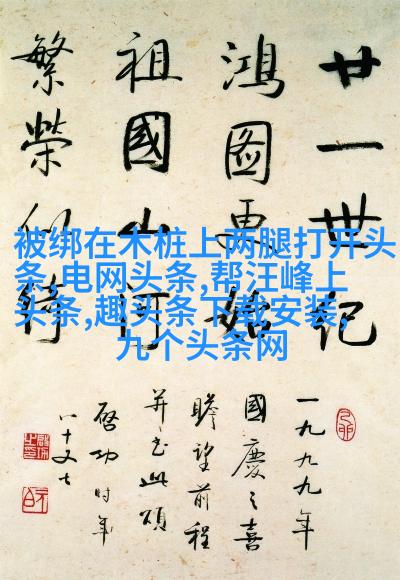 廿一世紀
鴻圖更始
祖國山河
繁榮似綺
一九九九年
國慶之喜
瞻望前程
并书此頌
啓功时年
八十又七
被绑在木桩上两腿打开头
条,电网头条,帮汪峰上
头条,趣头条下载安装,
九个头条网